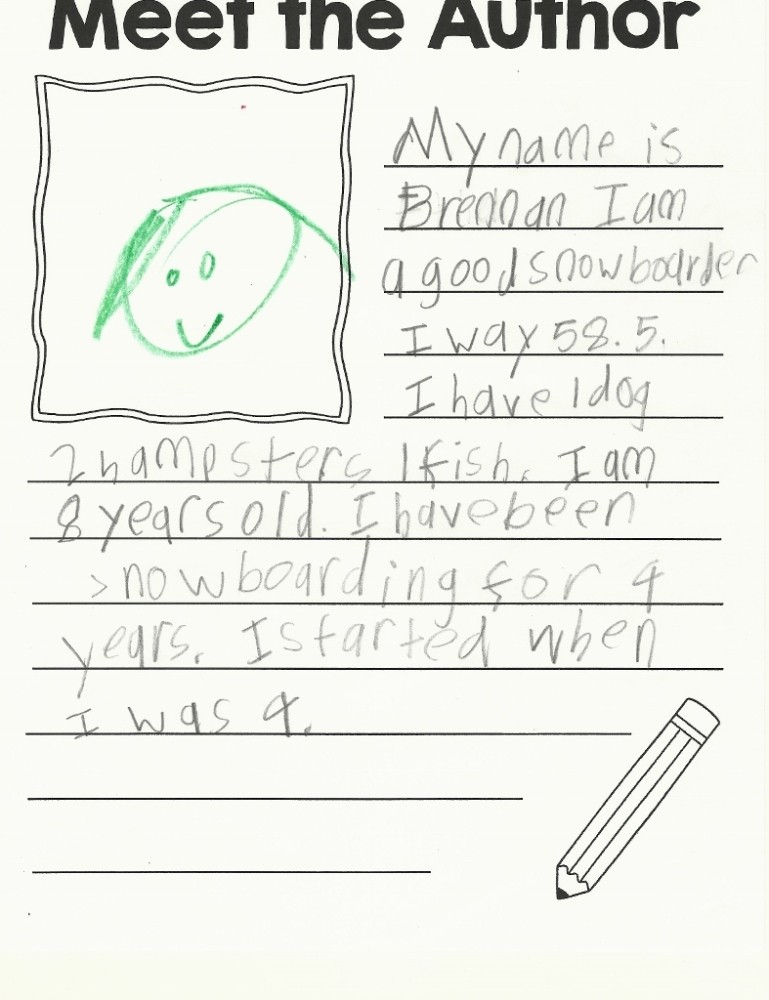 Meet the Author
My name is
Brennan I am
a good snowboarder
I way 58.5.
I have 1 dog
2 hampsters 1 fish. I am
8 years old. I have been
snowboarding for 4
years. I started when
I was 4.